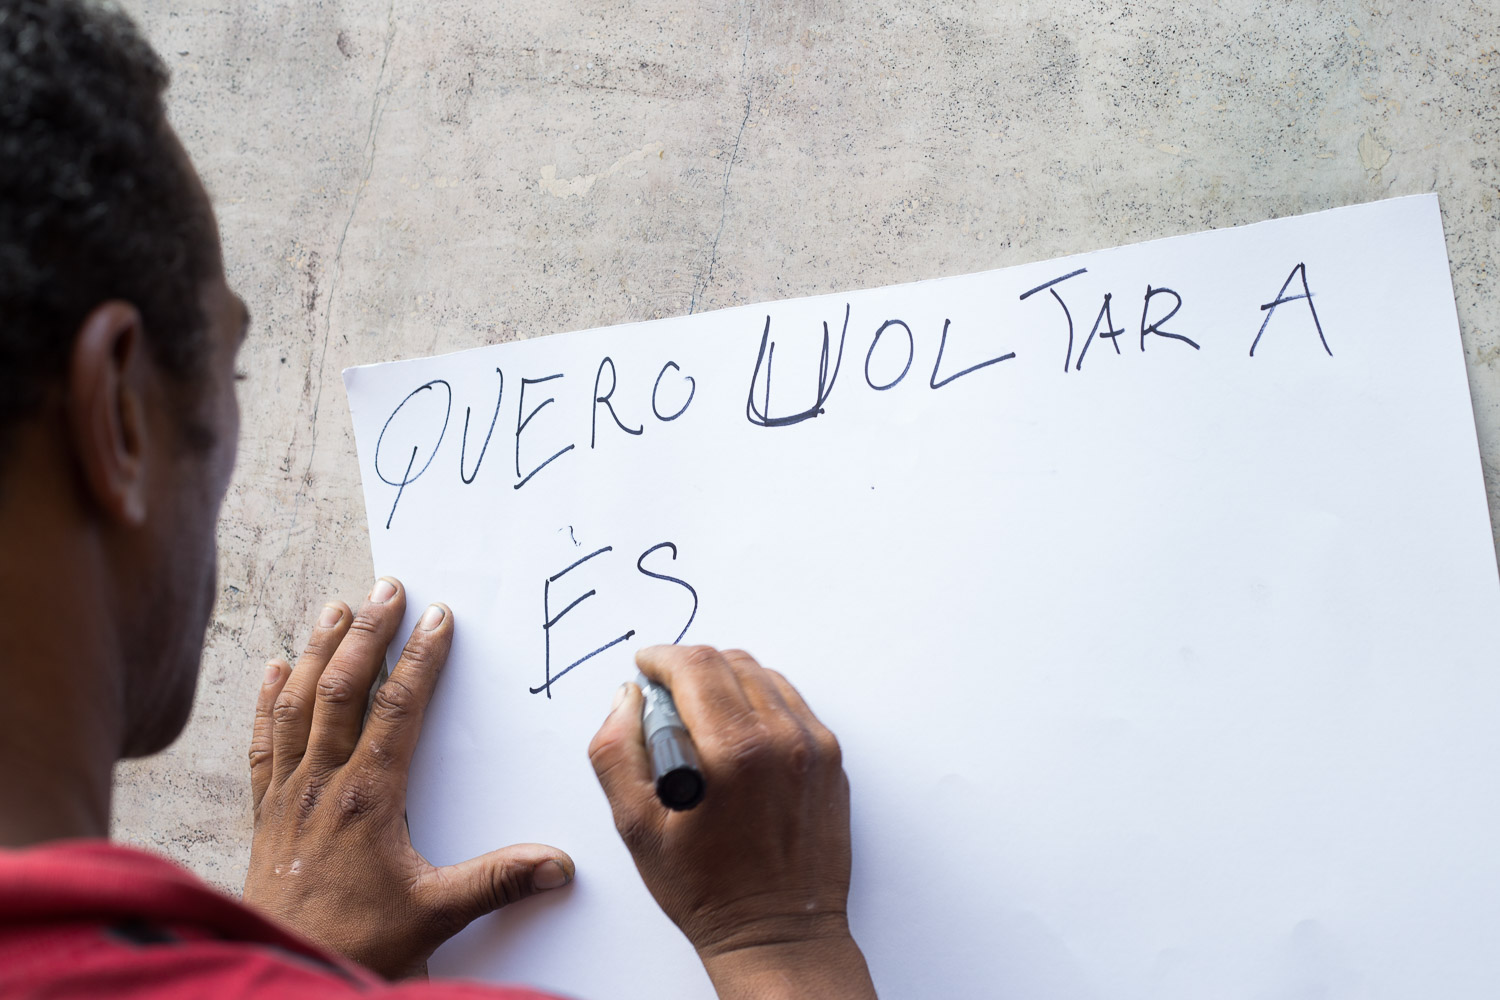 QUERO UOLTAR A
ES